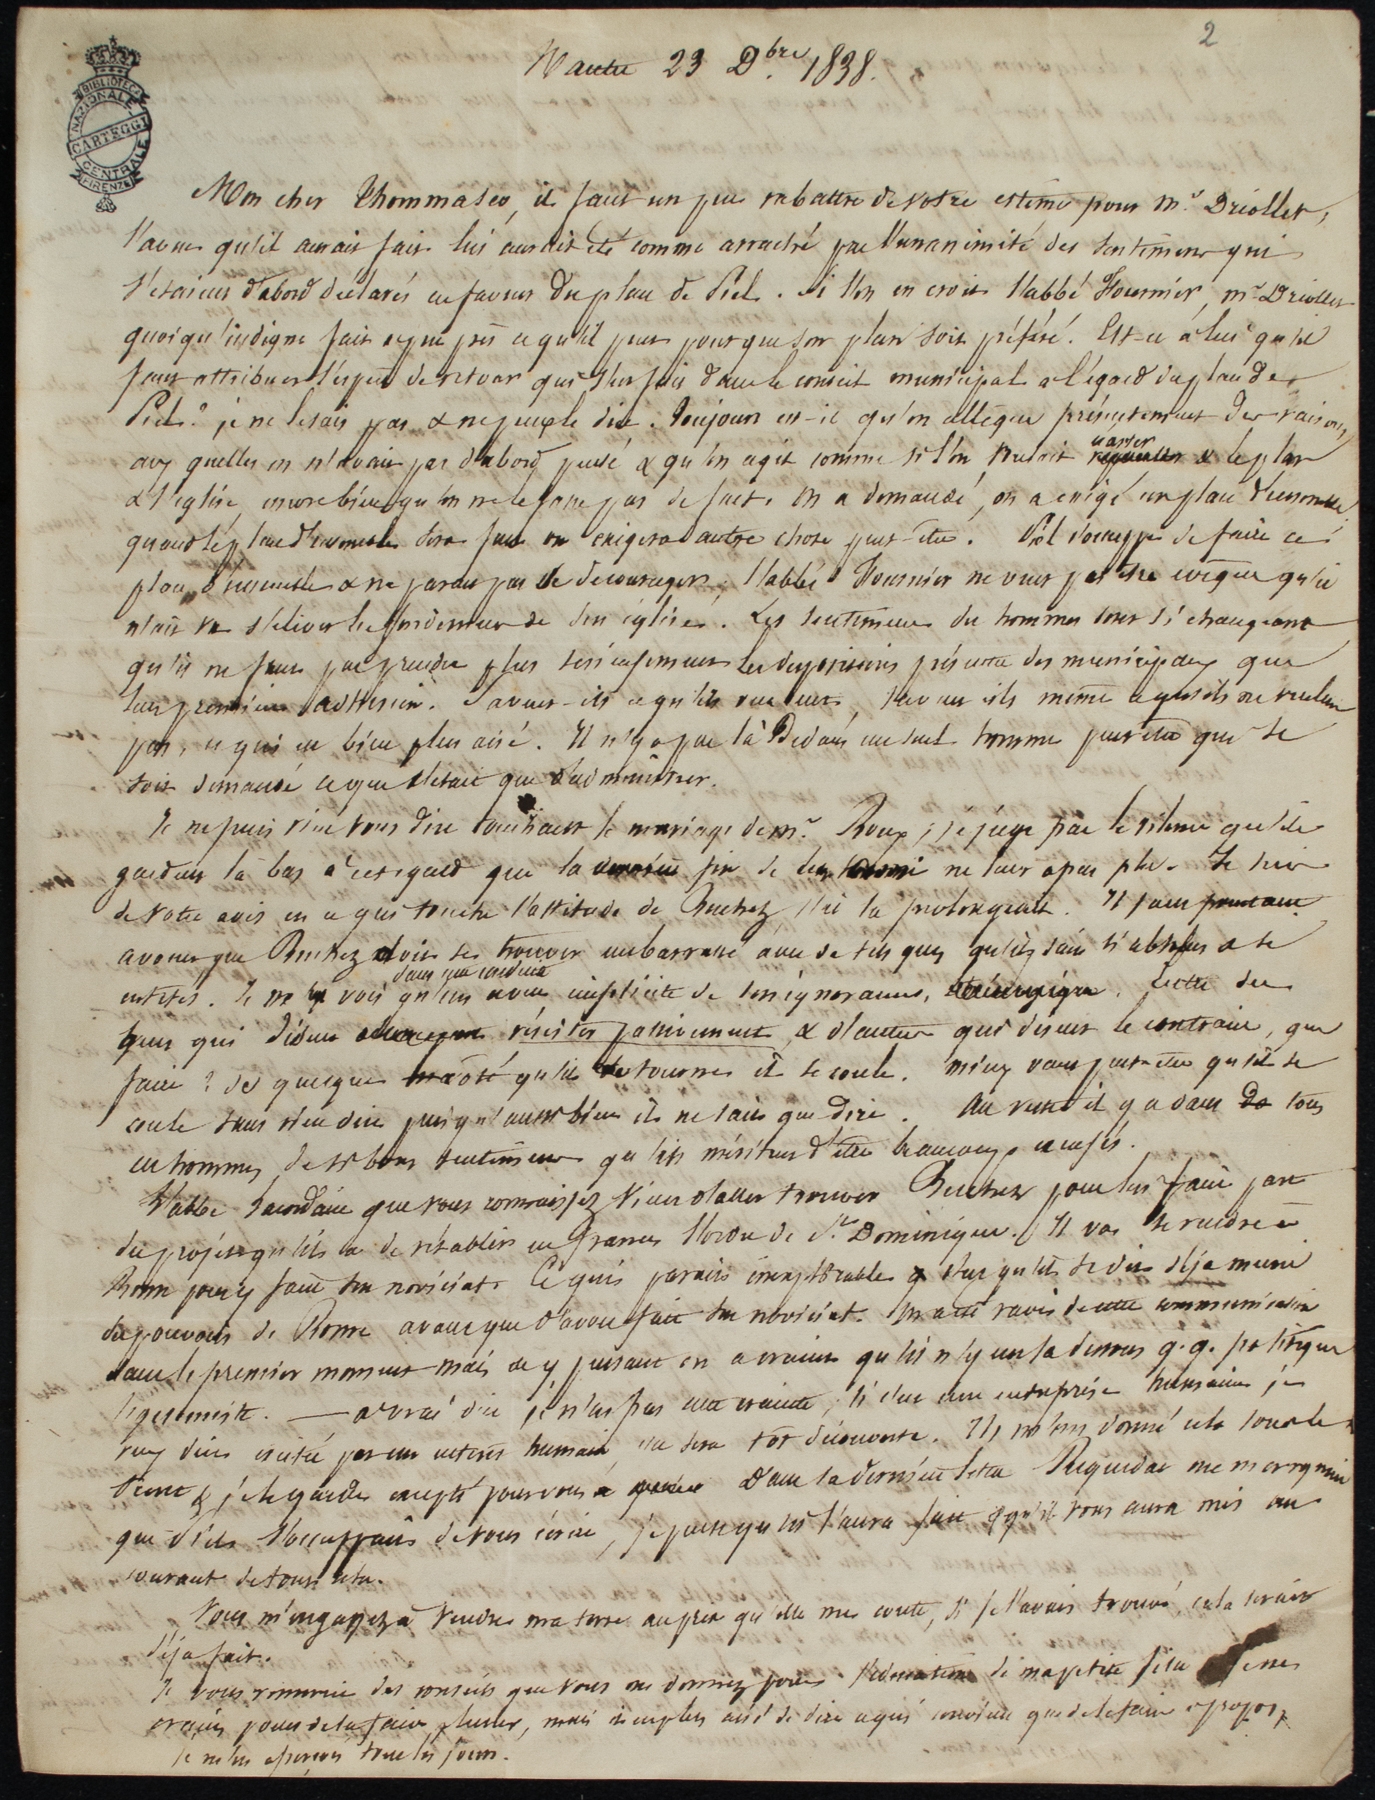 2
BIBLIOTECA NAZIONALE CENTRALE FIRENZE
CARTEGGI
Nantes 23 Dbre 1838.
Mon cher Thommaseo, il faut un peu rabattre de votre estime pour mr Driollet,
l'aveu qu'il aurait fait lui aurait été comme arraché par l'unanimité des sentimens qui
s'etaient d'abord déclarés en faveur du plan de Piel. Si l'on en croit l'abbé Fournier, mr Driollet
quoiqu'indigne fait à peu près ce qu'il peut pour que son plan soit préféré. Est-ce à lui qu'il
faut attribuer l'espèce de retour qui s'est fait dans le conseil municipal à l'égard du plan de
Piel? je ne le sais pas & ne puis le dire. Toujours est-il qu'on allègue présentement des raisons
aux quelles on n'avait pas d'abord pensé & qu'on agit comme si l'on voulait & le plan
& l'eglise, encore bien qu'on ne le fasse pas de fait. On a demandé, on a exigé un plan d'ensemble,
quand le plan d'ensemble sera fait on exigera autre chose peut-être. Piel s'occuppe de faire ce
plan d'ensemble & ne parait pas se decourager; l'abbé Fournier ne veut pas être evêque qu'il
n'ait vu s'elever les fondemens de son église. Les sentimens des hommes sont si changeans
qu'il ne faut pas prendre plus sérieusement les dispositions présentes des municipaux que
leur première adhesion. Savent-ils ce qu'ils veulent, savent ils même ce qu'ils ne veulent
pas, ce qui est bien plus aisé. Il n'y a pas là dedans un seul homme peut être qui se
soit demandé ce que c'était que d'administrer.
Je ne puis rien vous dire touchant le mariage de mr Roux; je juge par le silence qu'ils
gardent là bas à cet egard que la fin de ne leur a pas plu. Je suis
de votre avis en ce qui touche l'attitude de Buchez s'il la prolongeait. Il faut pourtant
avouer que Buchez doit se trouver embarrassé avec de tels gens qu'ils sont si absolus & si
entêtés. Je ne vois dans sa conduite qu'un aveu implicite de son ignorance, . Entre des
gens qui disent résister passivement, & d'autres qui disent le contraire, que
faire? de quelque côté qu'il se tourne il se coule. mieux vaut peut-être qu'il se
coule sans rien dire puisqu'aussi bien il ne sait que dire. Au reste il y a dans tous
ces hommes de si bons sentimens qu'ils méritent d'être beaucoup excusés.
L'abbé Lacordaire que vous connaissez vient d'aller trouver Buchez pour lui faire part
du projet qu'il a de rétablir en France l'ordre de St Dominique. Il va se rendre à
Rome pour y faire son noviciat. Ce qui parait inexplicable c'est qu'il se dit déja muni
de pouvoirs de Rome avant que d'avoir fait son noviciat. On a été ravi de cette communication
dans le premier moment mais en y pensant on a craint qu'il n'y eut la dessous q.q. politique
légitimiste. — à vrai dire je n'ai pas cette crainte, si c'est une entreprise humaine je
veux dire excitée par un interet humain, elle sera tôt découverte. Ils m'ont donné cela sous le
secret & je le garde excepté pour vous. Dans sa dernière lettre Réquédat me marquait
que s'ils s'occuppait de vous écrire, je pense qu'il l'aura fait & qu'il vous aura mis au
courant de tout cela.
Vous m'engagez à vendre ma terre au prix qu'elle me coute, si je l'avais trouvé cela serait
déja fait.
Je vous remercie des conseils que vous me donnez pour l'education de ma petite fille. Je ne
crains pas de la faire pleurer, mais il est plus aisé de dire ce qui convient que de le faire à propos,
je m'en aperçois tous les jours.